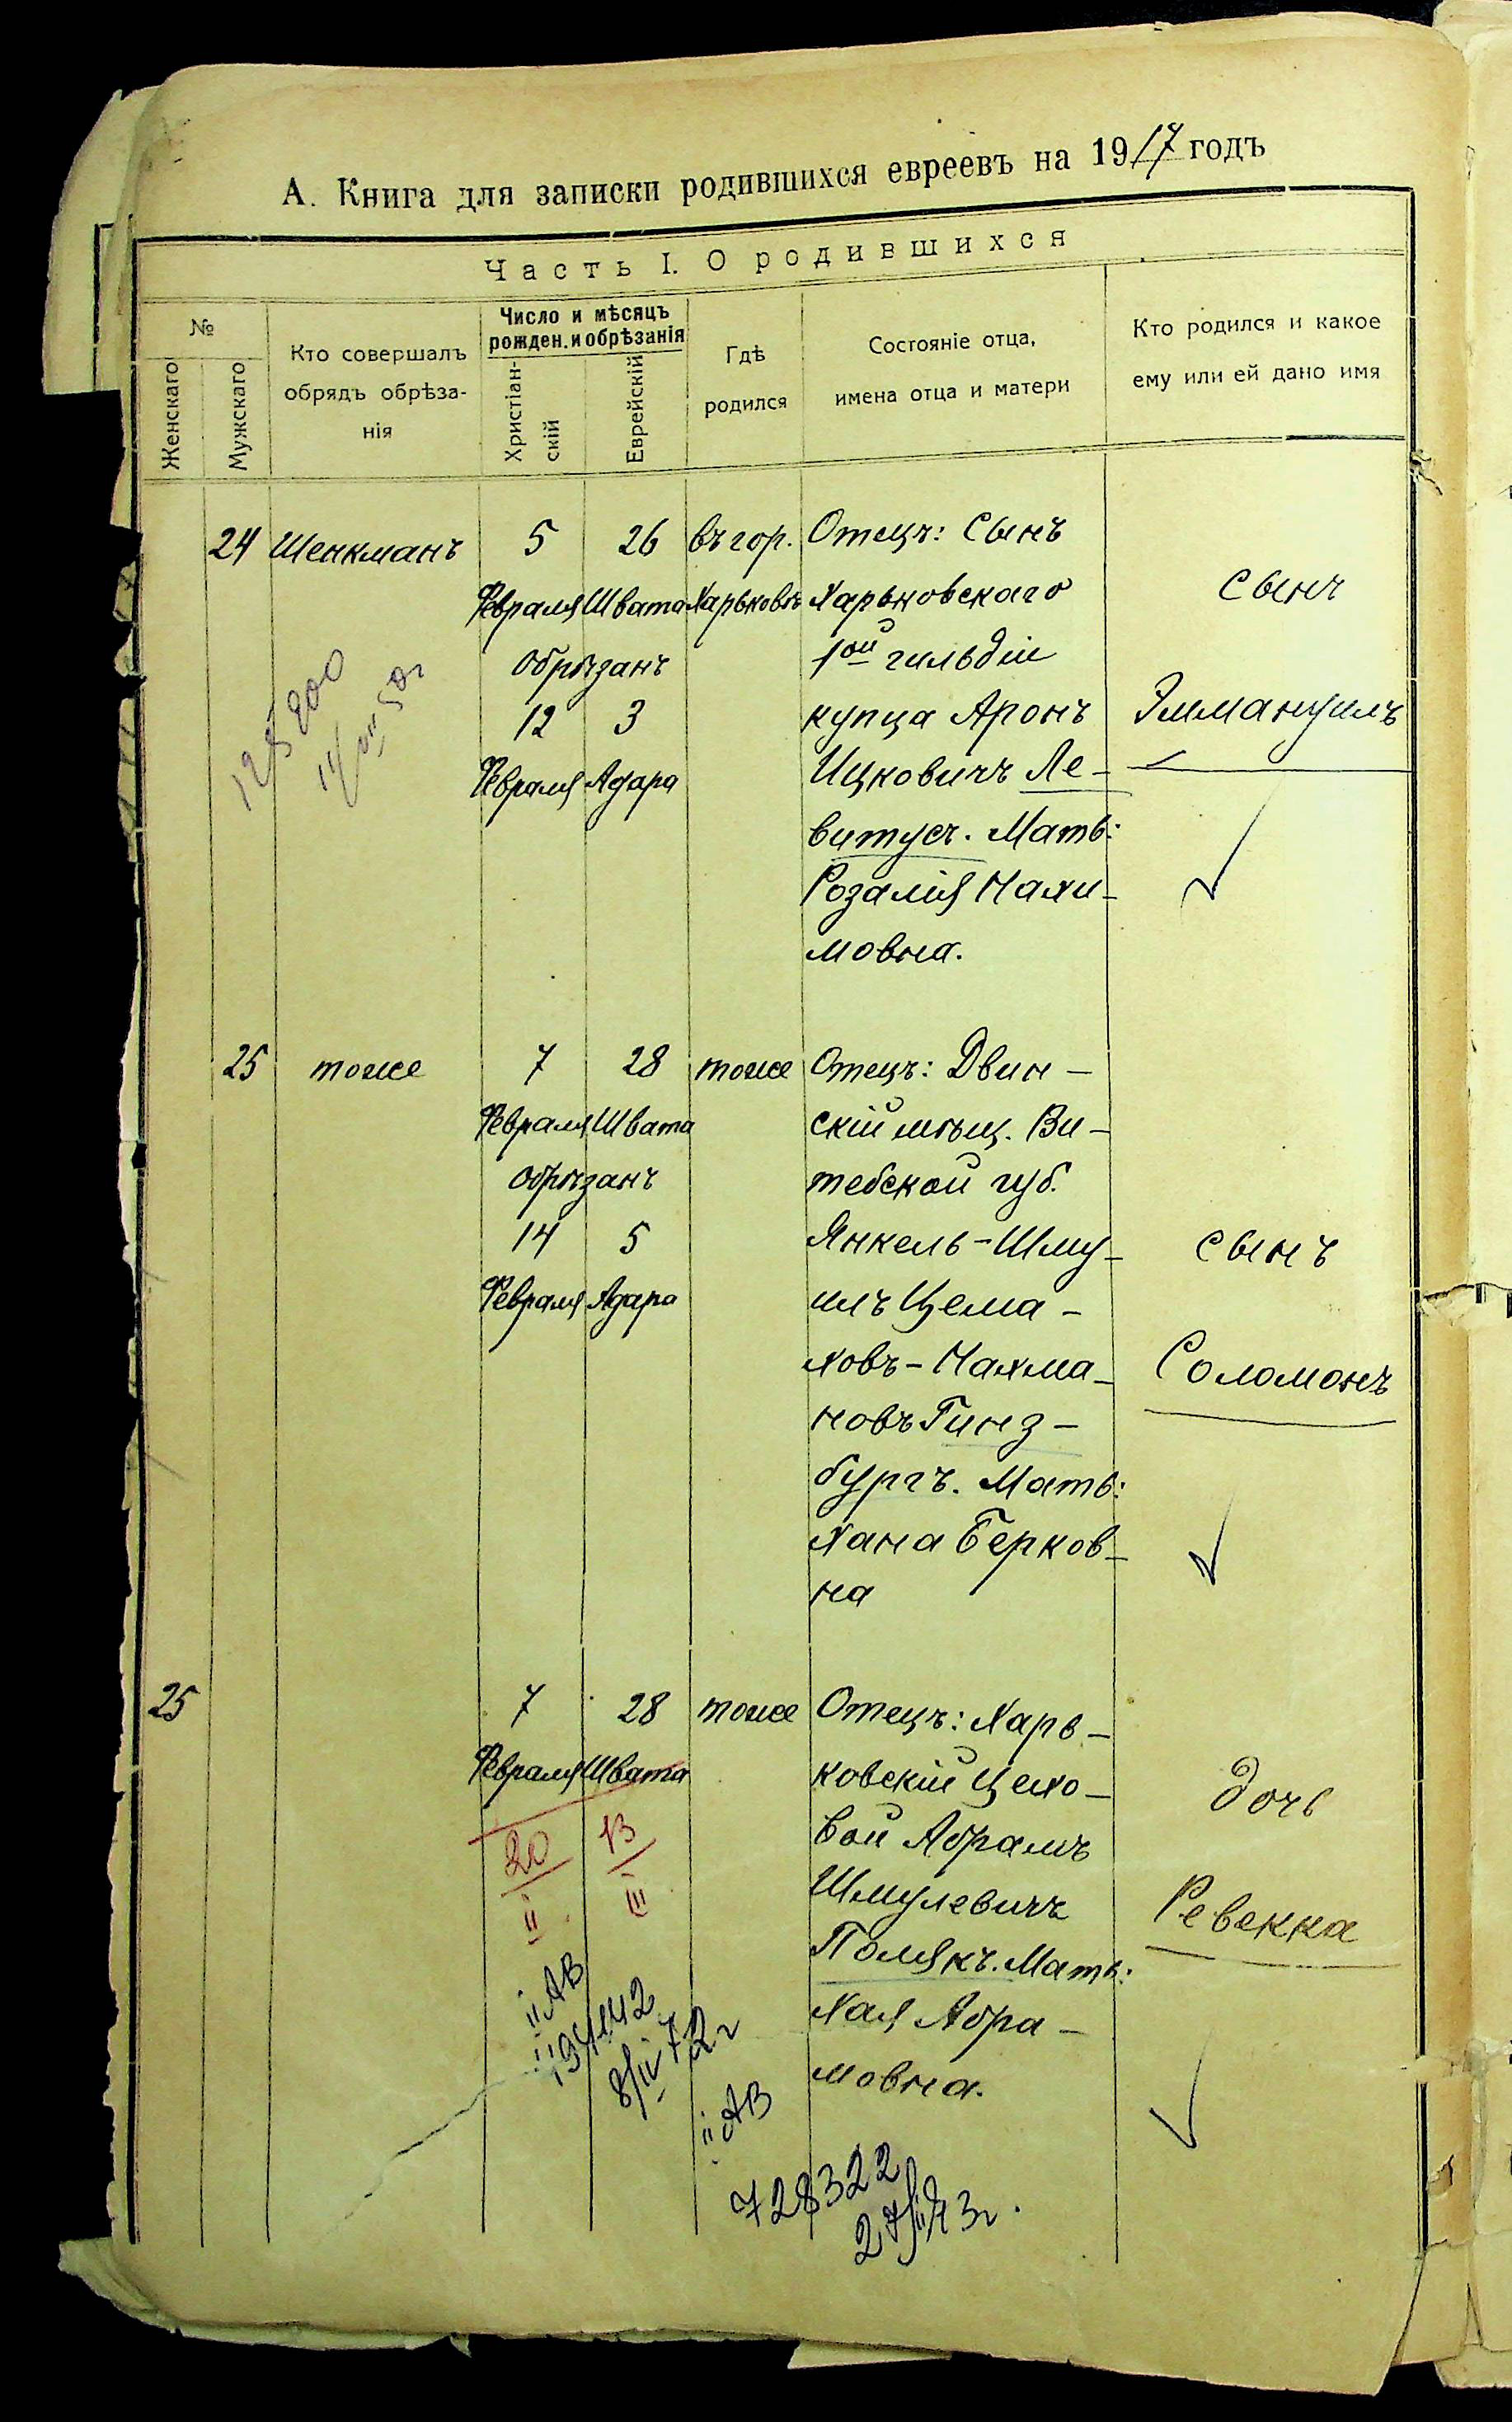 А. Книга для записки родившихся евреевъ на 1917 годъ
Часть I. О родившихся
№
Женскаго
Мужскаго
Кто совершалъ
обрядъ обрѣза-
нія
Число и мѣсяцъ
рожден. и обрѣзанія
Христіан-
скій
Еврейскій
Гдѣ
родился
Состояніе отца,
имена отца и матери
Кто родился и какое
ему или ей дано имя
24
Шенкманъ
5
Февраля
26
Швата
обрѣзанъ
12
Февраля
3
Адара
въ гор.
Харьковѣ
Отецъ: Сынъ
Харьковскаго
1ой гильдіи
купца Аронъ
Ицковичъ Ле-
витусъ. Мать:
Розалія Нахи-
мовна.
сынъ
Эммануилъ
25
тоже
7
Февраля
28
Швата
обрѣзанъ
14
Февраля
5
Адара
тоже
Отецъ: Двин-
скій мѣщ. Ви-
тебской губ.
Янкель-Шму-
илъ Цема-
ховъ-Нахма-
новъ Гинз-
бургъ. Мать:
Хана Берков-
на
сынъ
Соломонъ
25
7
Февраля
28
Швата
20
II
13
III
тоже
Отецъ: Харь-
ковскій Цехо-
вой Абрамъ
Шмулевичъ
Полякъ. Мать:
Хая Абра-
мовна.
дочь
Ревекка
II АВ
8/IV 72г
II АВ
728322